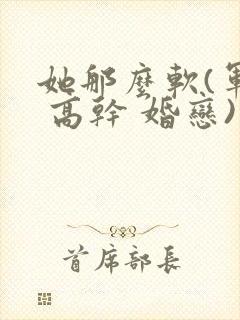 她那麼軟(軍
高幹 婚戀)
首席部長